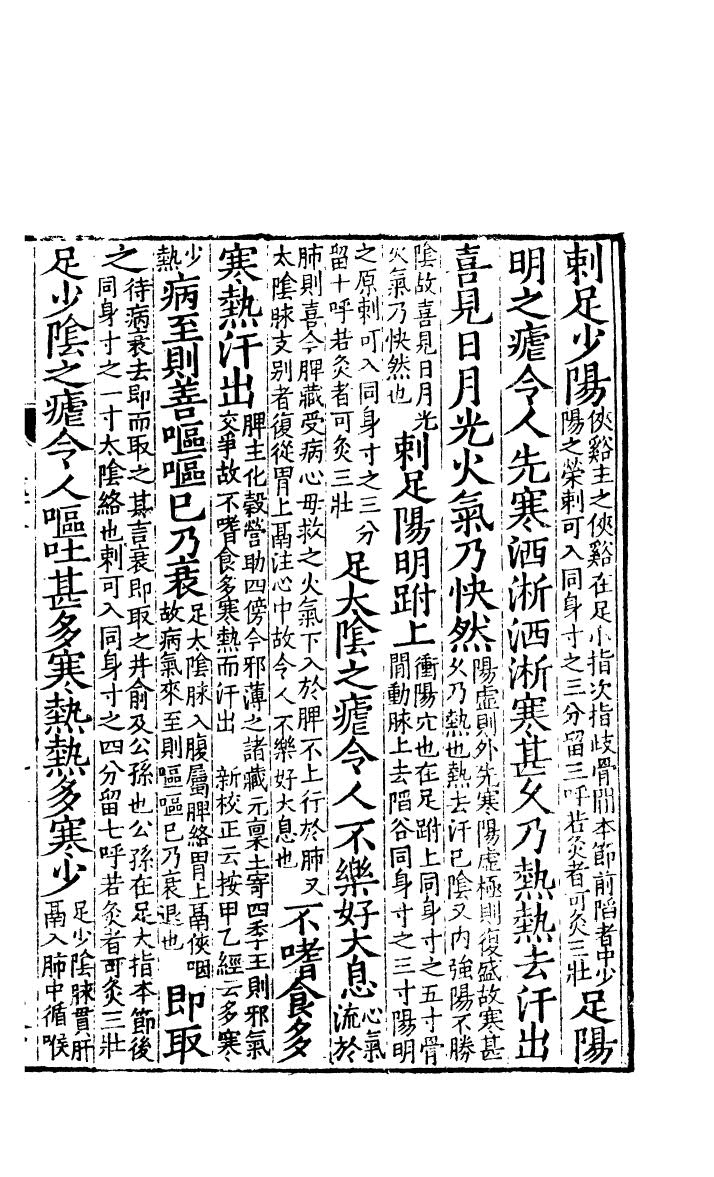 刺足少陽俠谿主之俠谿在足小指次指歧骨間本節前陷者中少陽之榮刺可入同身寸之三分留三呼若灸者可灸三壯足陽
明之瘧令人先寒洒淅洒淅寒甚乆乃熱熱去汗出
喜見日月光火氣乃快然陽虛則外先寒陽虛極則復盛故寒甚乆乃熱也熱去汗已陰又内強陽不勝
陰故喜見日月光火氣乃快然也刺足陽明跗上衝陽穴也在足跗上同身寸之五寸骨間動脉上去陷谷同身寸之三寸陽明
之原刺可入同身寸之三分留十呼若灸者可灸三壯足太陰之瘧令人不樂好大息心氣流於
肺則喜今脾藏受病心毋救之火氣下入於脾不上行於肺又太陰脉支别者復從胃上鬲注心中故令人不樂好大息也不嗜食多
寒熱汗出脾主化穀營助四傍今邪薄之諸藏元稟土寄四季王則邪氣交爭故不嗜食多寒熱而汗出　新校正云按甲乙經云多寒
少熱病至則善嘔嘔已乃衰足太陰脉入腹屬脾絡胃上鬲俠咽故病氣來至則嘔嘔已乃衰退也即取
之待病衰去即而取之其言衰即取之井俞及公孫也公孫在足大指本節後同身寸之一寸太陰絡也刺可入同身寸之四分留七呼若灸者可灸三壯
足少陰之瘧令人嘔吐甚多寒熱熱多寒少足少陰脉貫肝鬲入肺中循喉